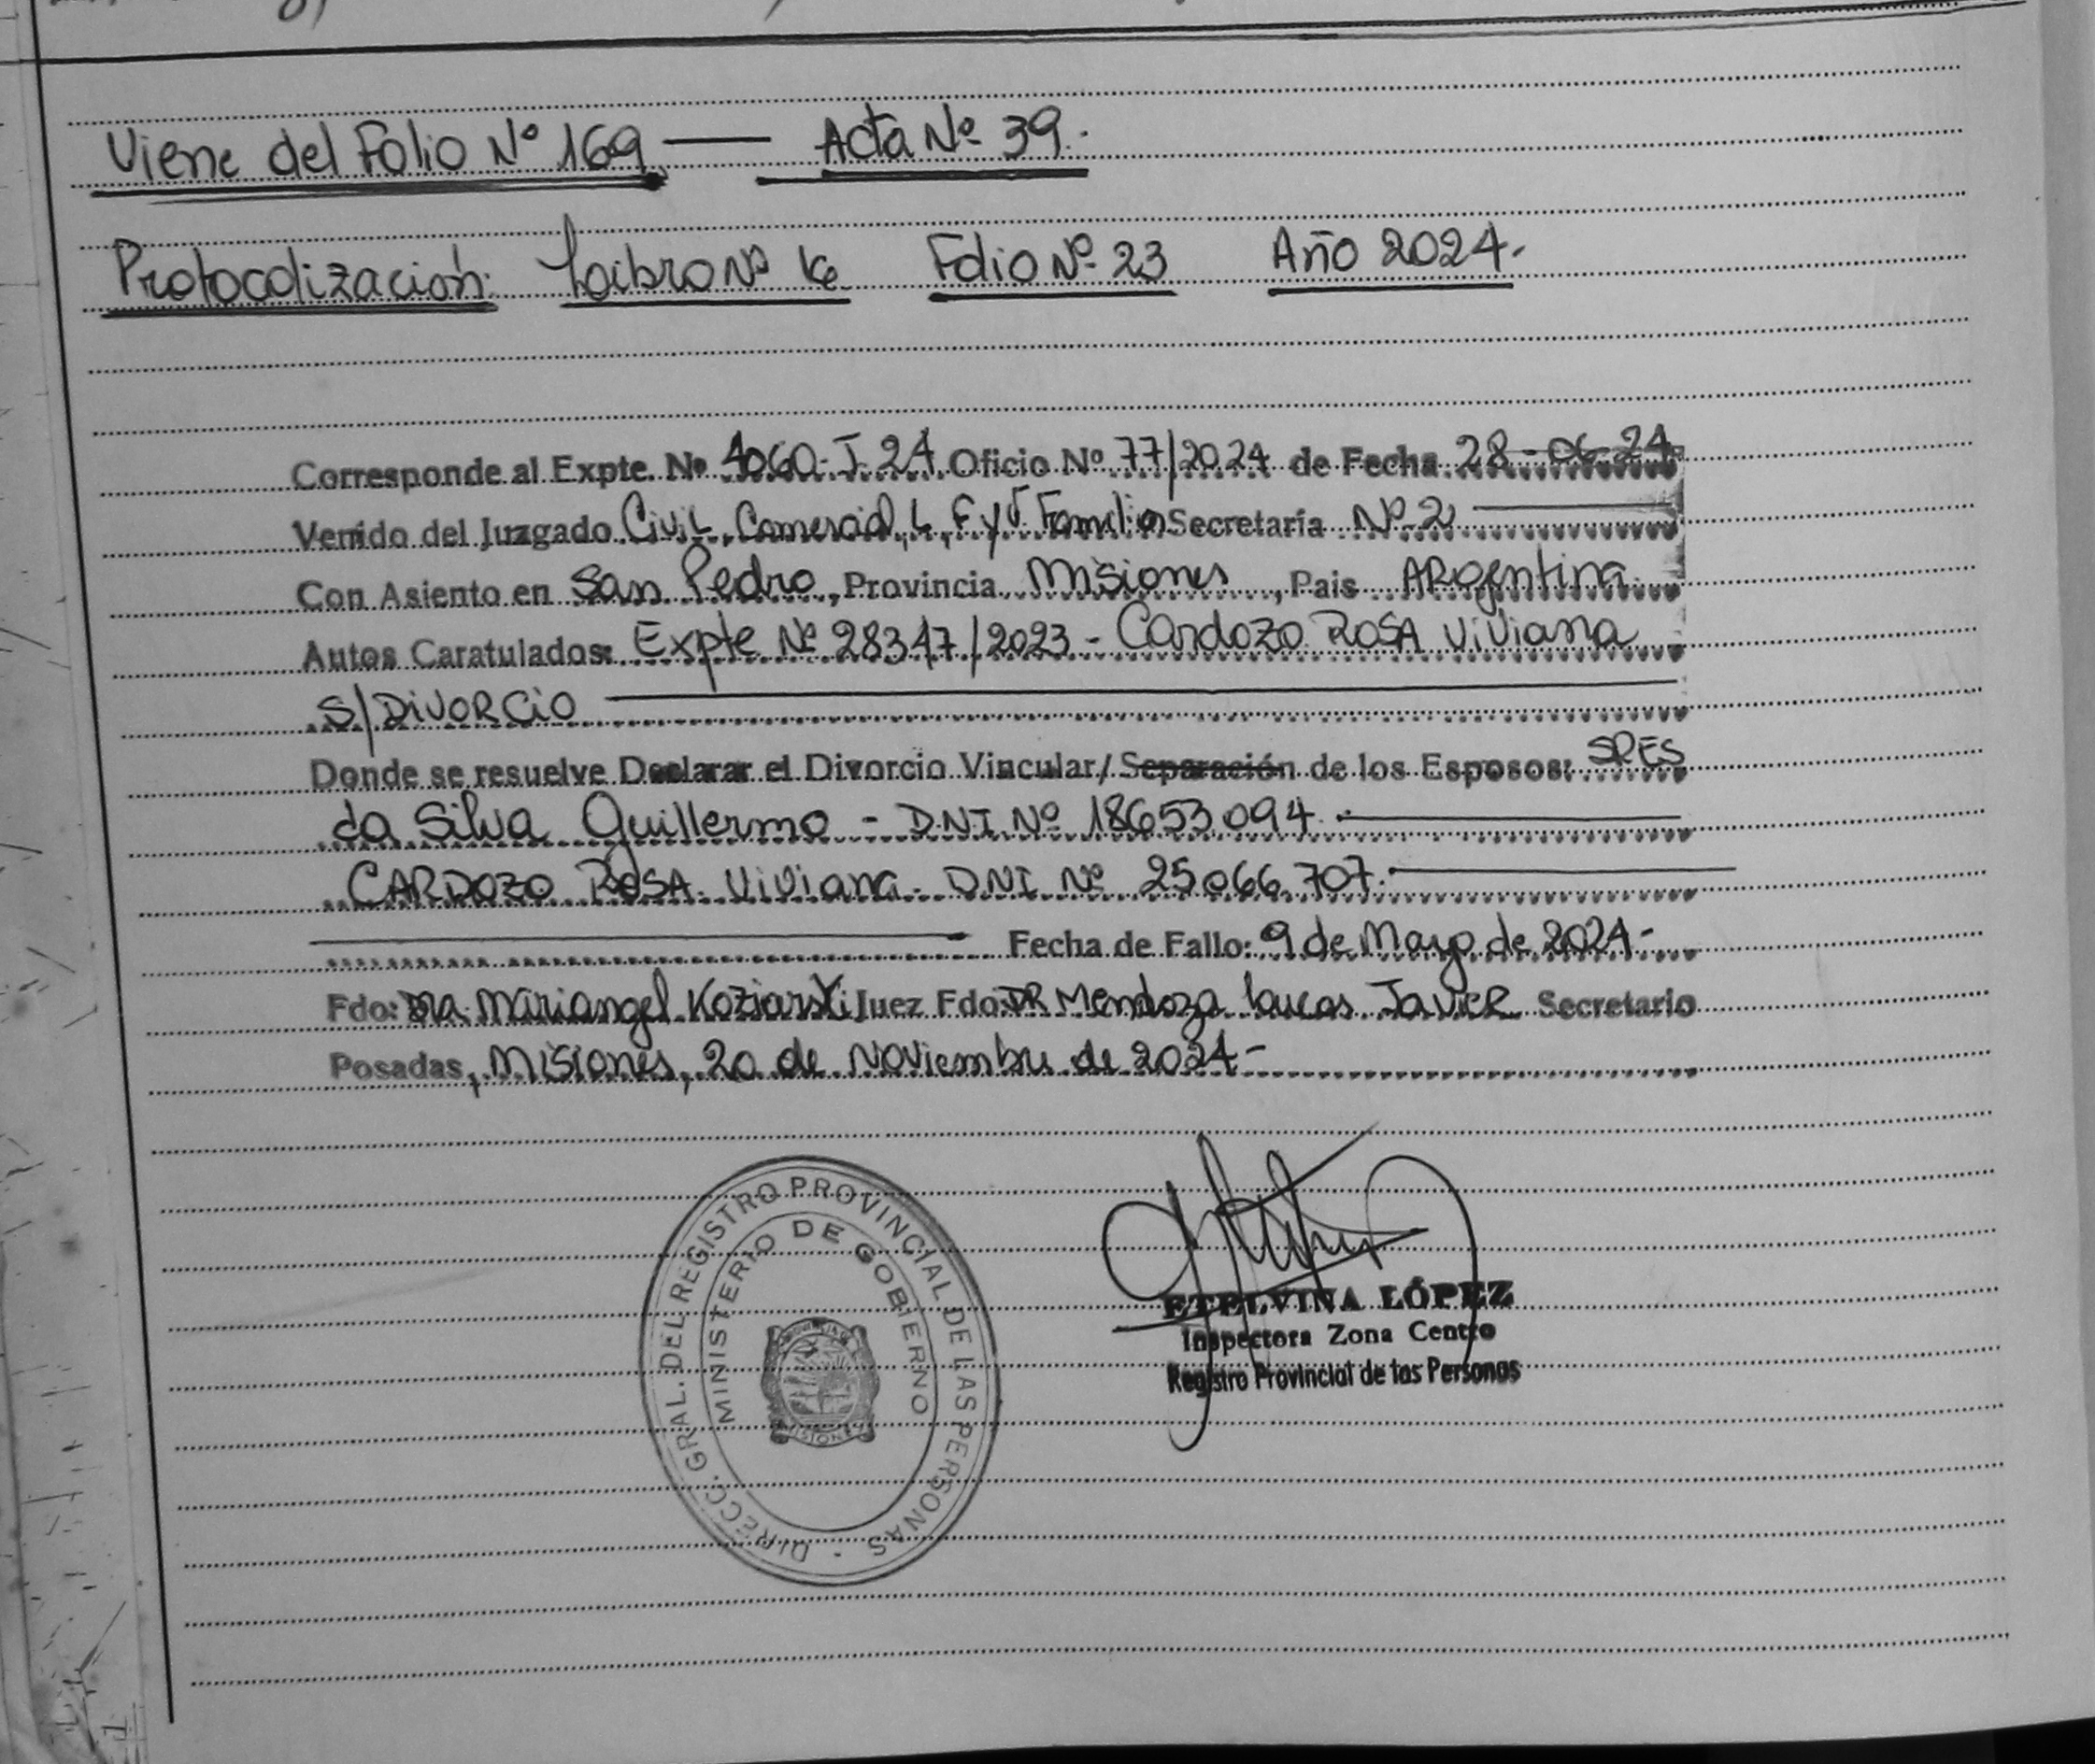 Viene del Folio Nº 169 — Acta Nº 39.
Protocolización: Libro Nº Folio Nº 23 Año 2024.
Corresponde al Expte. Nº 4060-J-24 Oficio Nº 77/2024 de Fecha 28-06-24
Venido del Juzgado Civil, Comercial, L, F y V Familia Secretaría Nº 2
Con Asiento en San Pedro, Provincia Misiones, Pais Argentina
Autos Caratulados: Expte Nº 28347/2023 - Cardozo Rosa Viviana
S/Divorcio
Donde se resuelve Declarar el Divorcio Vincular/Separación de los Esposos: SRES
da Silva Guillermo - DNI Nº 18653.094.
CARDOZO ROSA Viviana. DNI Nº 25.066.707.
Fecha de Fallo: 9 de Mayo de 2024-
Fdo: Dra Mariangel Koziarski Juez Fdo: DR Mendoza Lucas Javier Secretario
Posadas, Misiones, 20 de Noviembre de 2024-
DIRECC. GRAL. DEL REGISTRO PROVINCIAL DE LAS PERSONAS
MINISTERIO DE GOBIERNO
MISIONES
ETELVINA LÓPEZ
Inspectora Zona Centro
Registro Provincial de las Personas